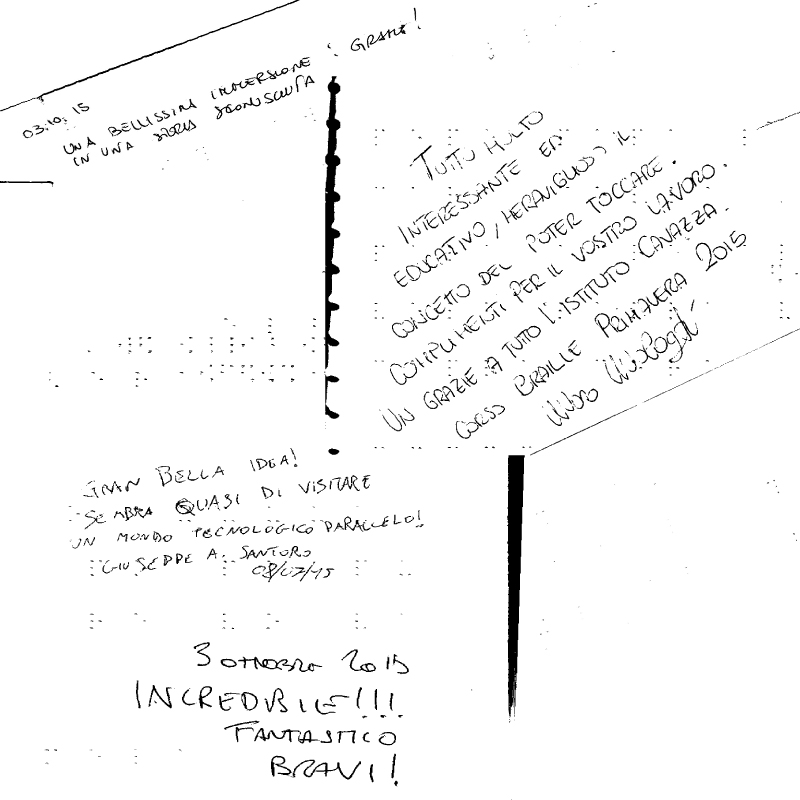 03.10.15
UNA BELLISSIMA IMMERSIONE
IN UNA STORIA SCONOSCIUTA
GRAZIE!
TUTTO MOLTO
INTERESSANTE ED
EDUCATIVO, MERAVIGLIOSO IL
CONCETTO DEL POTER TOCCARE.
COMPLIMENTI PER IL VOSTRO LAVORO.
UN GRAZIE A TUTTO L'ISTITUTO CAVAZZA.
CORSO BRAILLE PRIMAVERA 2015
GRAN BELLA IDEA!
SEMBRA QUASI DI VISITARE
UN MONDO TECNOLOGICO PARALLELO!
GIUSEPPE A. SANTORO
08/07/15
3 OTTOBRE 2015
INCREDIBILE!!!
FANTASTICO
BRAVI!